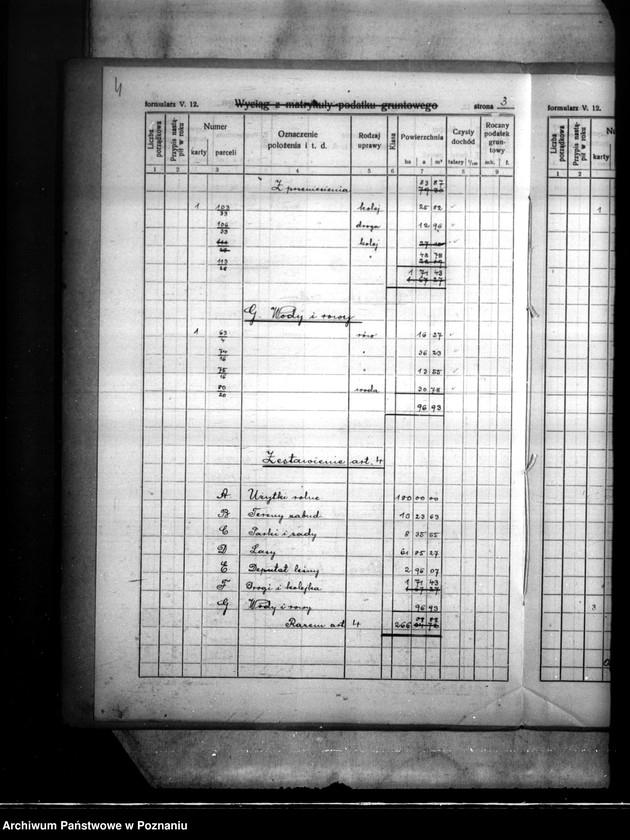 4
formularz V. 12.
Wyciąg z matrykuły podatku gruntowego
strona 3
formularz V. 12.
Liczba porządkowa
Przypis nastąpił w roku
Numer
karty parceli
Oznaczenie położenia i t. d.
Rodzaj uprawy
Klasa
Powierzchnia
ha a m²
Czysty dochód
talary 1/100
Roczny podatek gruntowy
mk. f.
1 2 3 4 5 6 7 8 9
Z przeniesienia 83 87
1 103/33 kolej 25 82
106/33 droga 12 96
kolej
113/26 " 48 78
1 71 43
1 67 27
G Wody i rowy
1 63/4 rów 16 27
74/16 " 36 23
75/16 " 13 65
80/20 woda 30 78
96 93
Zestawienie art. 4
A Użytki rolne 180 00 00
B Tereny zabud. 10 23 63
C Parki i sady 8 35 55
D Lasy 61 85 27
E Deputat leśny 2 96 07
F Drogi i kolejka 1 71 43
1 67 27
G Wody i rowy 96 93
Razem art 4 266
Liczba porządkowa
Przypis nastąpił w roku
karty
1 2
1
3
Archiwum Państwowe w Poznaniu